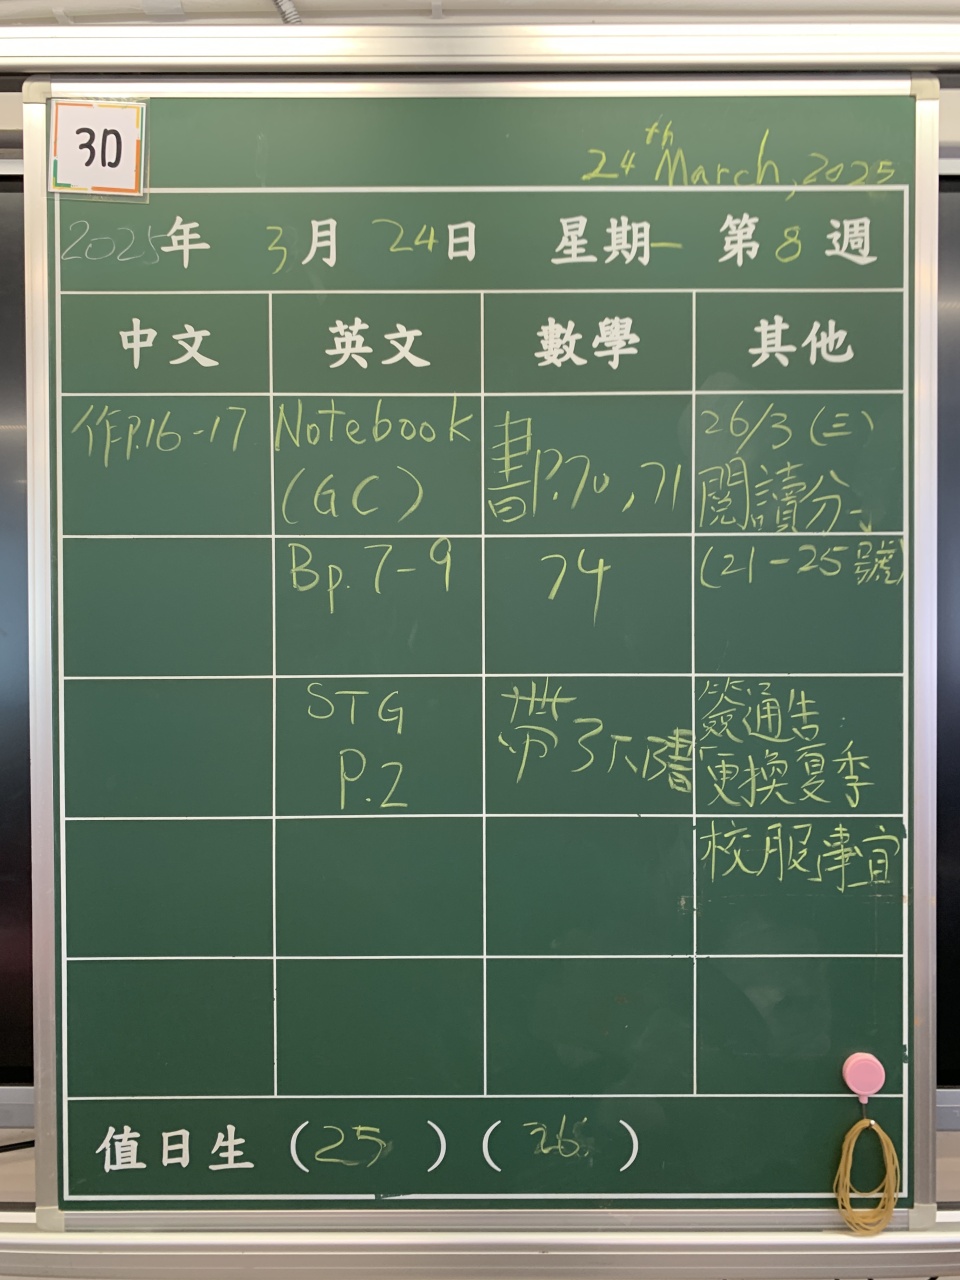 3D
24th March, 2025
2025年 3月 24日 星期一 第8週
中文 英文 數學 其他
作P.16-17
Notebook
(GC)
書P.70,71
26/3(三)
閱讀分
Bp.7-9
74
(21-25號)
STG
P.2
帶3下B書
簽通告:
更換夏季
校服事宜
值日生(25)(26)